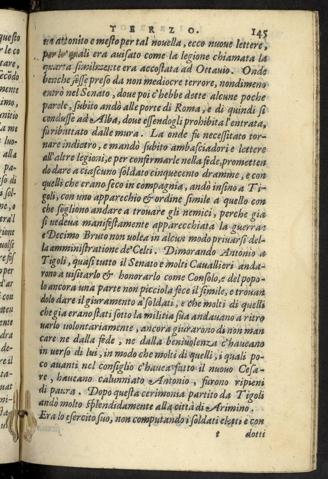 TERZO. 145
un attonito e mesto per tal novella, ecco nuove lettere,
per le quali era avisato come la legione chiamata la
quarta similmente era accostata ad Ottavio. Onde
benche fosse preso da non mediocre terrore, nondimeno
entrò nel Senato, dove poi c'hebbe dette alcune poche
parole, subito andò alle porte di Roma, e di quindi si
condusse ad Alba, dove essendogli prohibita l'entrata,
fu ributtato dalle mura. La onde fu necessitato tor-
nare indietro, e mandò subito ambasciadori e lettere
all'altre legioni, e per confermarle nella fede, prometten
do dare a ciascuno soldato cinquecento dramme, e con
quelli che erano seco in compagnia, andò insino a Ti-
goli, con uno apparechio & ordine simile a quello con
che sogliono andare a trovare gli nemici, perche gia
si vedeva manifestamente apparecchiata la guerra:
e Decimo Bruto non volea in alcun modo privarsi del-
la amministratione de' Celti. Dimorando Antonio a
Tigoli, quasi tutto il Senato e molti Cavallieri anda-
rono a visitarlo & honorarlo come Consolo, e del popo-
lo ancora una parte non picciola fece il simile, e trovan
dolo dare il giuramento a' soldati, e che molti di quelli
che gia erano stati sotto la militia sua andavano a ritro
varlo volontariamente, ancora giurarono di non man
care ne dalla fede, ne dalla benivolenza c'haveano
in verso di lui, in modo che molti di quelli, i quali po-
co avanti nel consiglio c'havea fatto il nuovo Cesa-
re, haveano calunniato Antonio, furono ripieni
di paura. Dopo questa cerimonia partito da Tigoli
andò molto splendidamente alla città di Arimino.
Era lo esercito suo, non computando i soldati eletti e con
t dotti